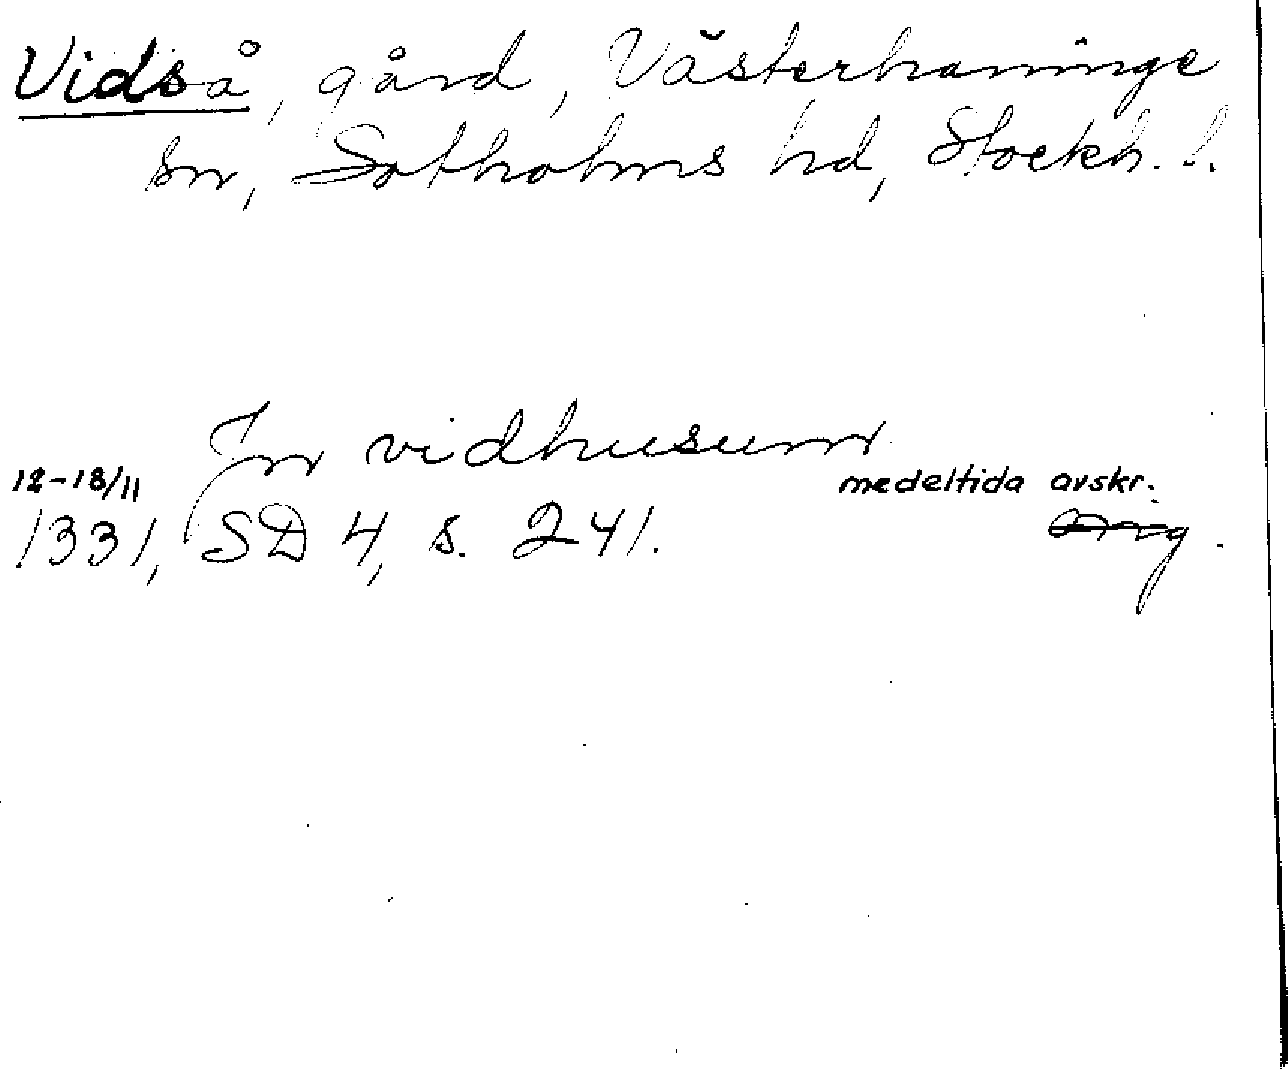 Vidså, gård, Västerhaninge
sn, Sotholms hd, Stockh. l.
In vidhusum
12-18/11
medeltida avskr.
1331, SD 4, s. 241.
Orig.